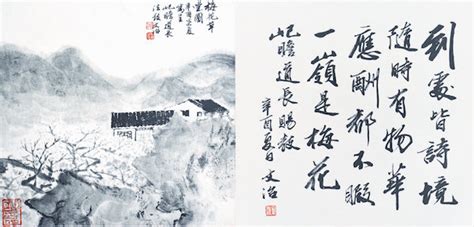 梅花草
堂圖
屺瞻道長
到處皆詩境
隨時有物華
應酬都不暇
一嶺是梅花
屺瞻道長賜教
辛酉夏日文治